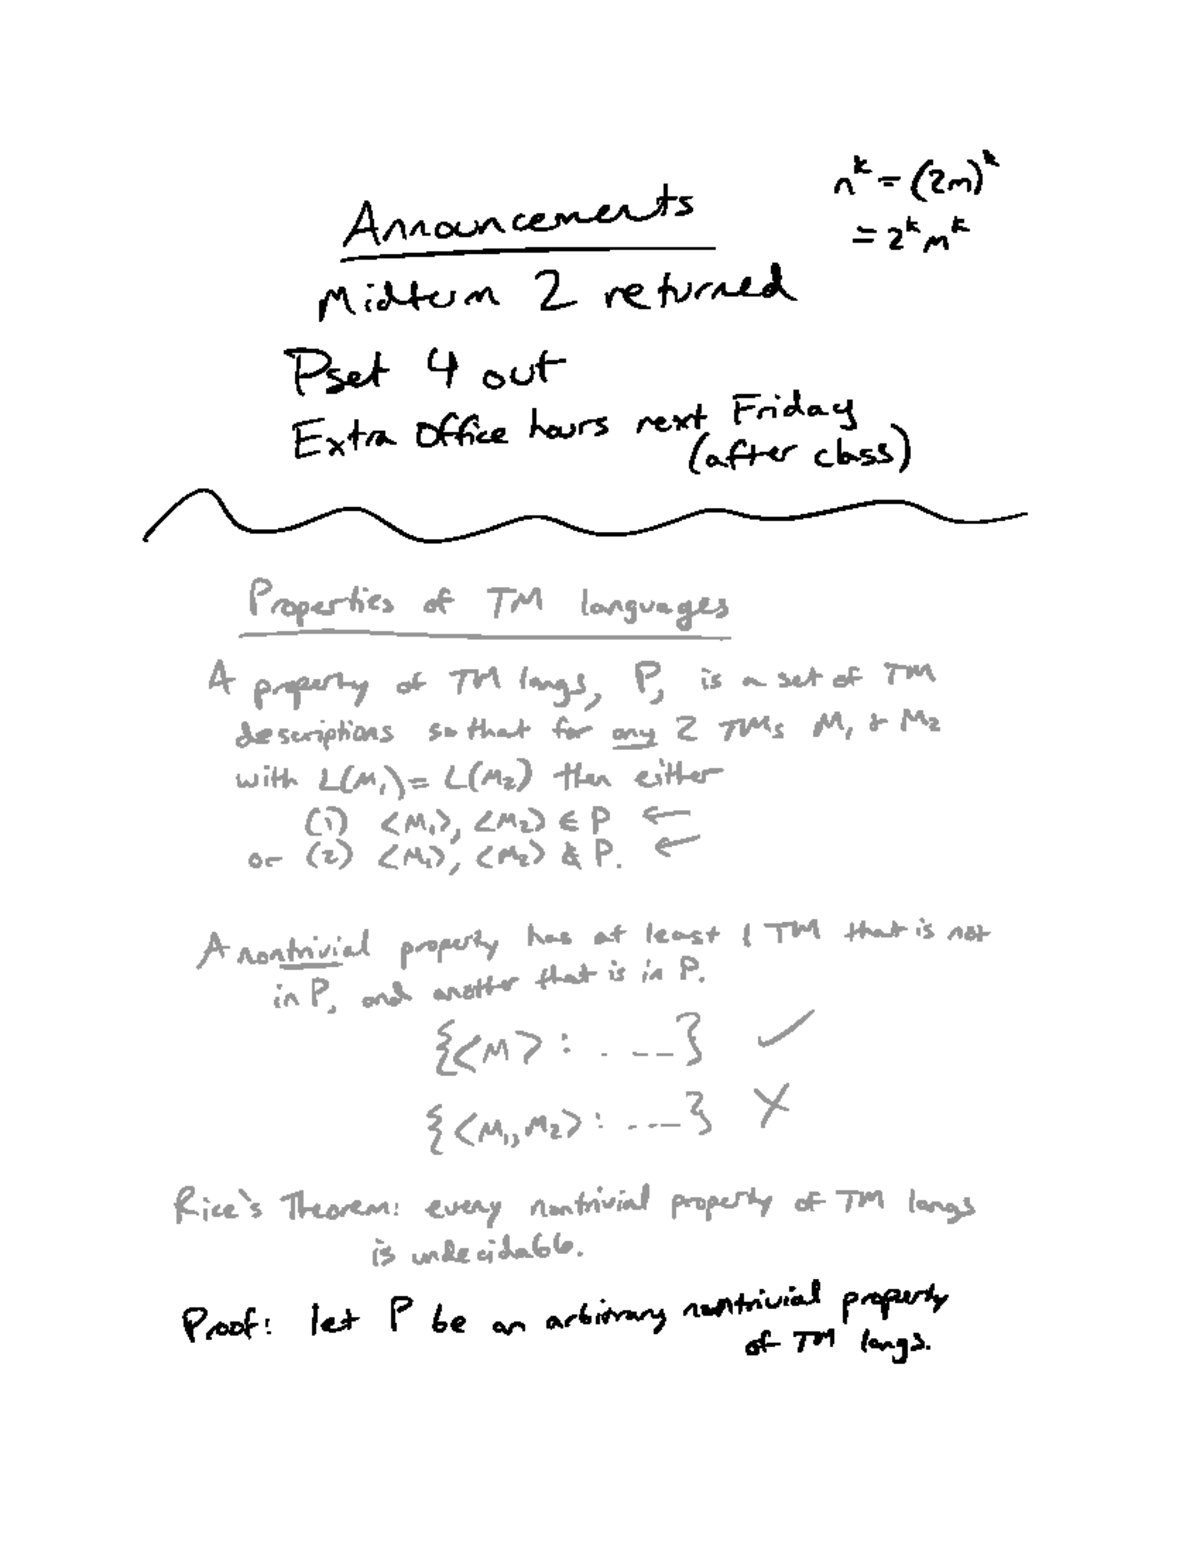 Announcements
n^k = (2m)^k
= 2^k m^k
Midterm 2 returned
Pset 4 out
Extra Office hours next Friday
(after class)
Properties of TM languages
A property of TM langs, P, is a set of TM
descriptions so that for any 2 TMs M₁ & M₂
with L(M₁) = L(M₂) then either
(1) <M₁>, <M₂> ∈ P ←
or (2) <M₁>, <M₂> ∉ P. ←
A nontrivial property has at least 1 TM that is not
in P, and another that is in P.
{<M> : . ---} ✓
{<M₁, M₂> : ----} X
Rice's Theorem: every nontrivial property of TM langs
is undecidable.
Proof: let P be an arbitrary nontrivial property
of TM langs.